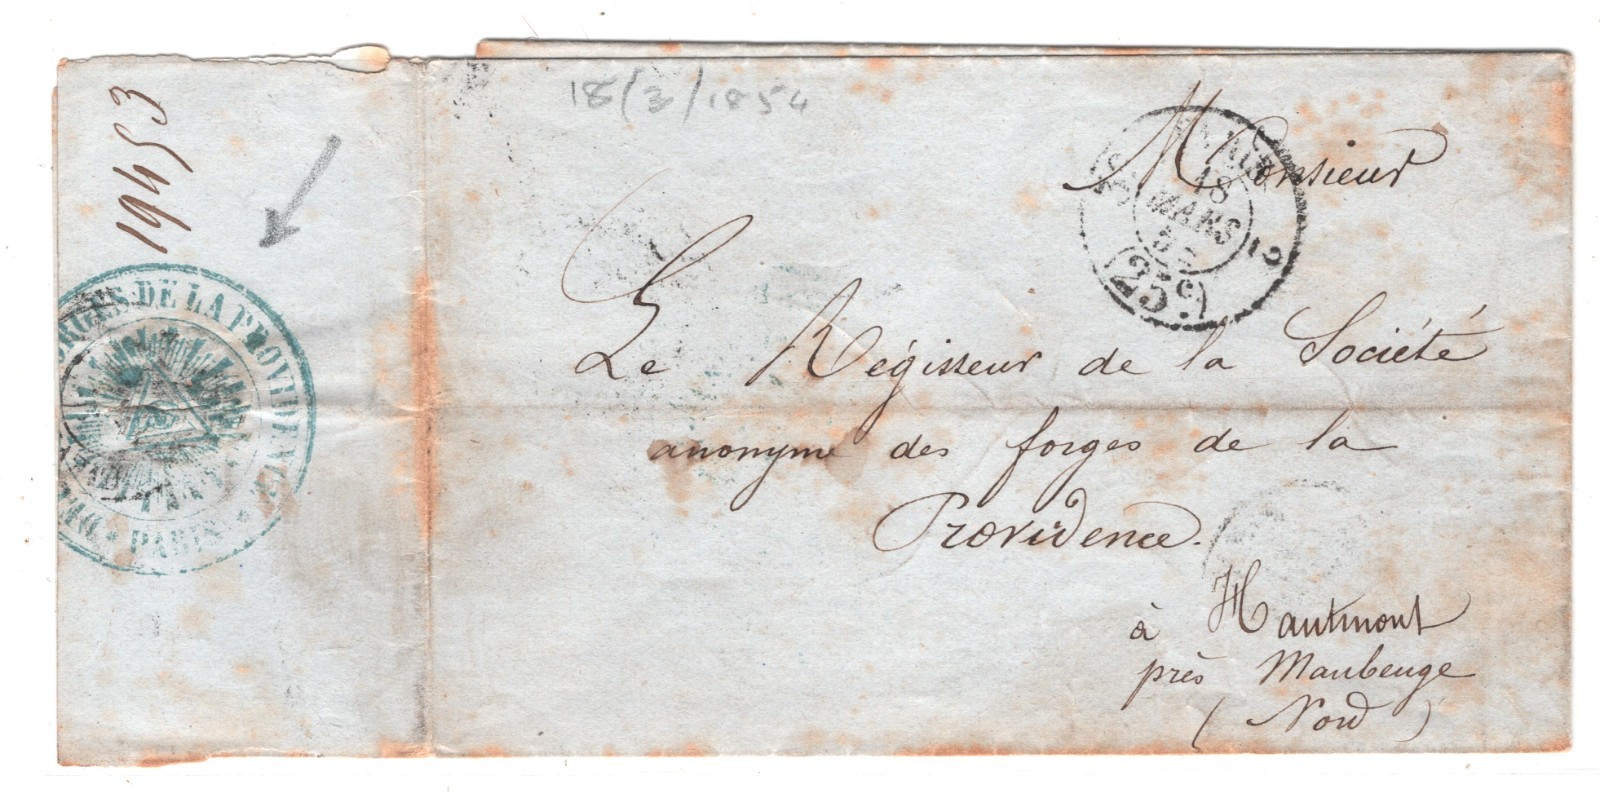 18/3/1854
19453
FORGES DE LA PROVIDENCE
PARIS
18
MARS
Monsieur
Le Régisseur de la Société
anonyme des forges de la
Providence.
à Hautmont
près Maubeuge
(Nord)